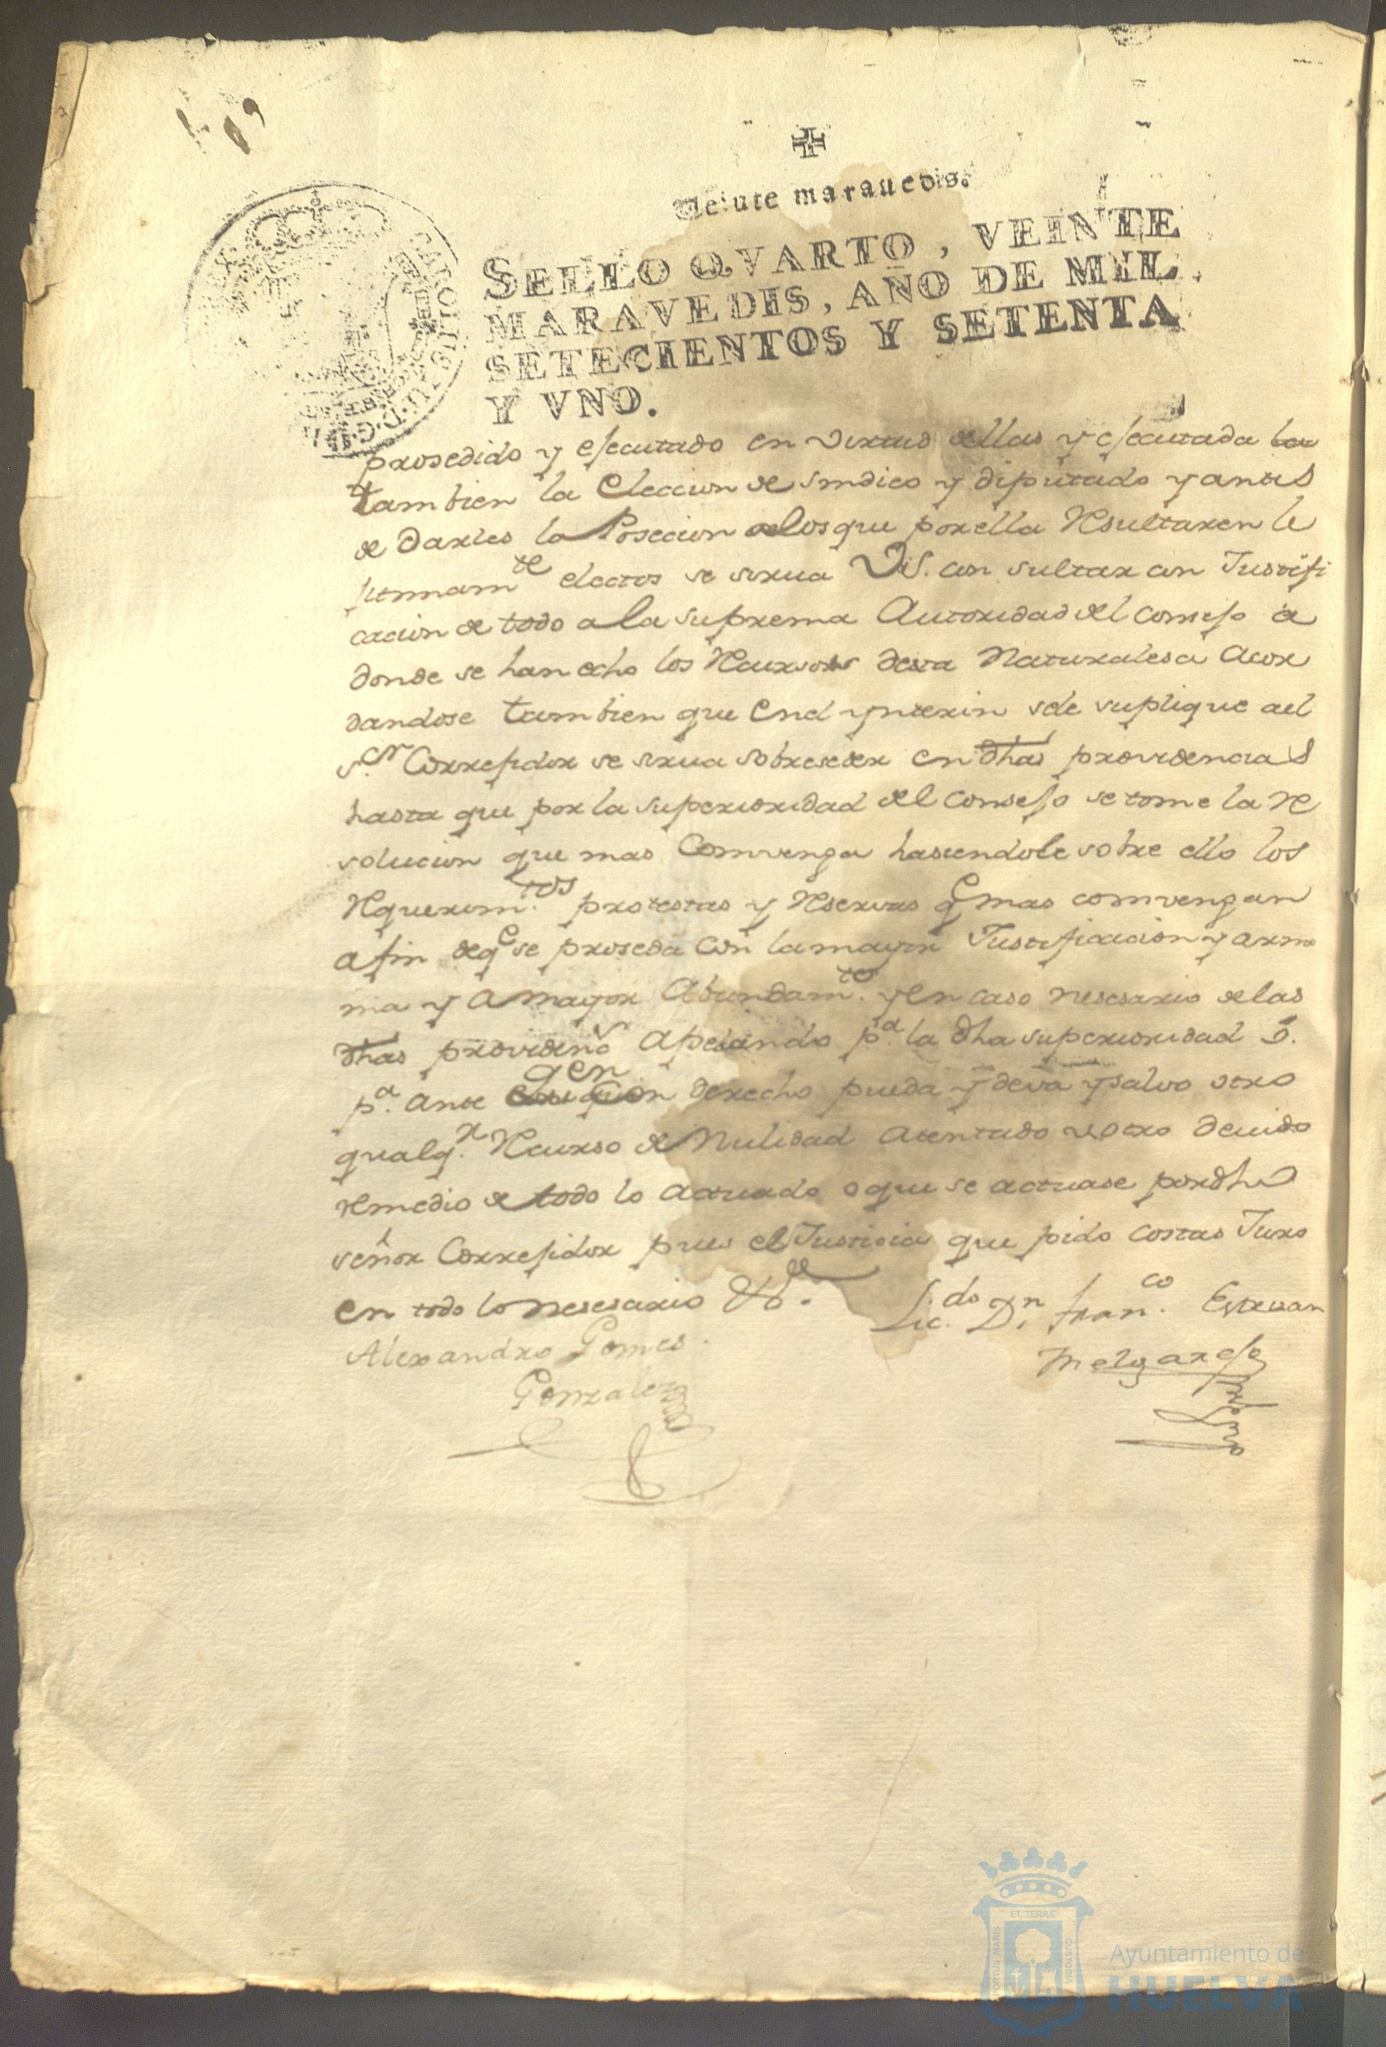 Veinte maravedis.
SELLO QVARTO, VEINTE
MARAVEDIS, AÑO DE MIL
SETECIENTOS Y SETENTA
Y VNO.
prosedido y esecutado en virtud dellas y esecutada
tambien la eleccion de sindico y diputado y antes
de darles la Posecion delos que por ella Resultaren le
jitimam.te electos se sirua VS. con sultar con Justifi
cacion de todo a la suprema Autoridad del Consejo a
donde se han echo los Recursos desta Naturalesa Acor
dandose tambien que en el ynterin sele suplique ael
s.or Corregidor se sirua sobreseder en dhas providencias
hasta que por la superioridad del Consejo se tome la Re
solucion que mas Comvenga hasiendole sobre ello los
Requerim.tos protestas y Reservas q.e mas comvengan
a fin de q.e se proseda con la mayor Justificacion y armo
nia y a mayor Abundam.to y en caso nesesario de las
dhas providen.s Apelando p.a la dha superioridad ó
p.a ante quien con derecho pueda y deva y salvo otro
qualq.r Recurso de Nulidad Atentado u otro deuido
remedio de todo lo actuado o que se actuase por dho
señor Corregidor pues es Justicia que pido costas Juro
en todo lo nesesario &.
Lic.do D.n Fran.co Estevan
Melgarejo
Alexandro Gomes
Gonzales
Ayuntamiento de
HUELVA